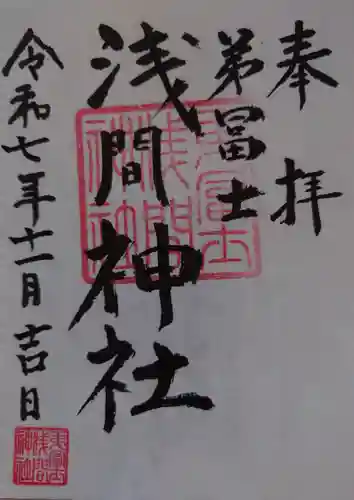 奉拝
弟冨士
浅間神社
令和七年十一月吉日